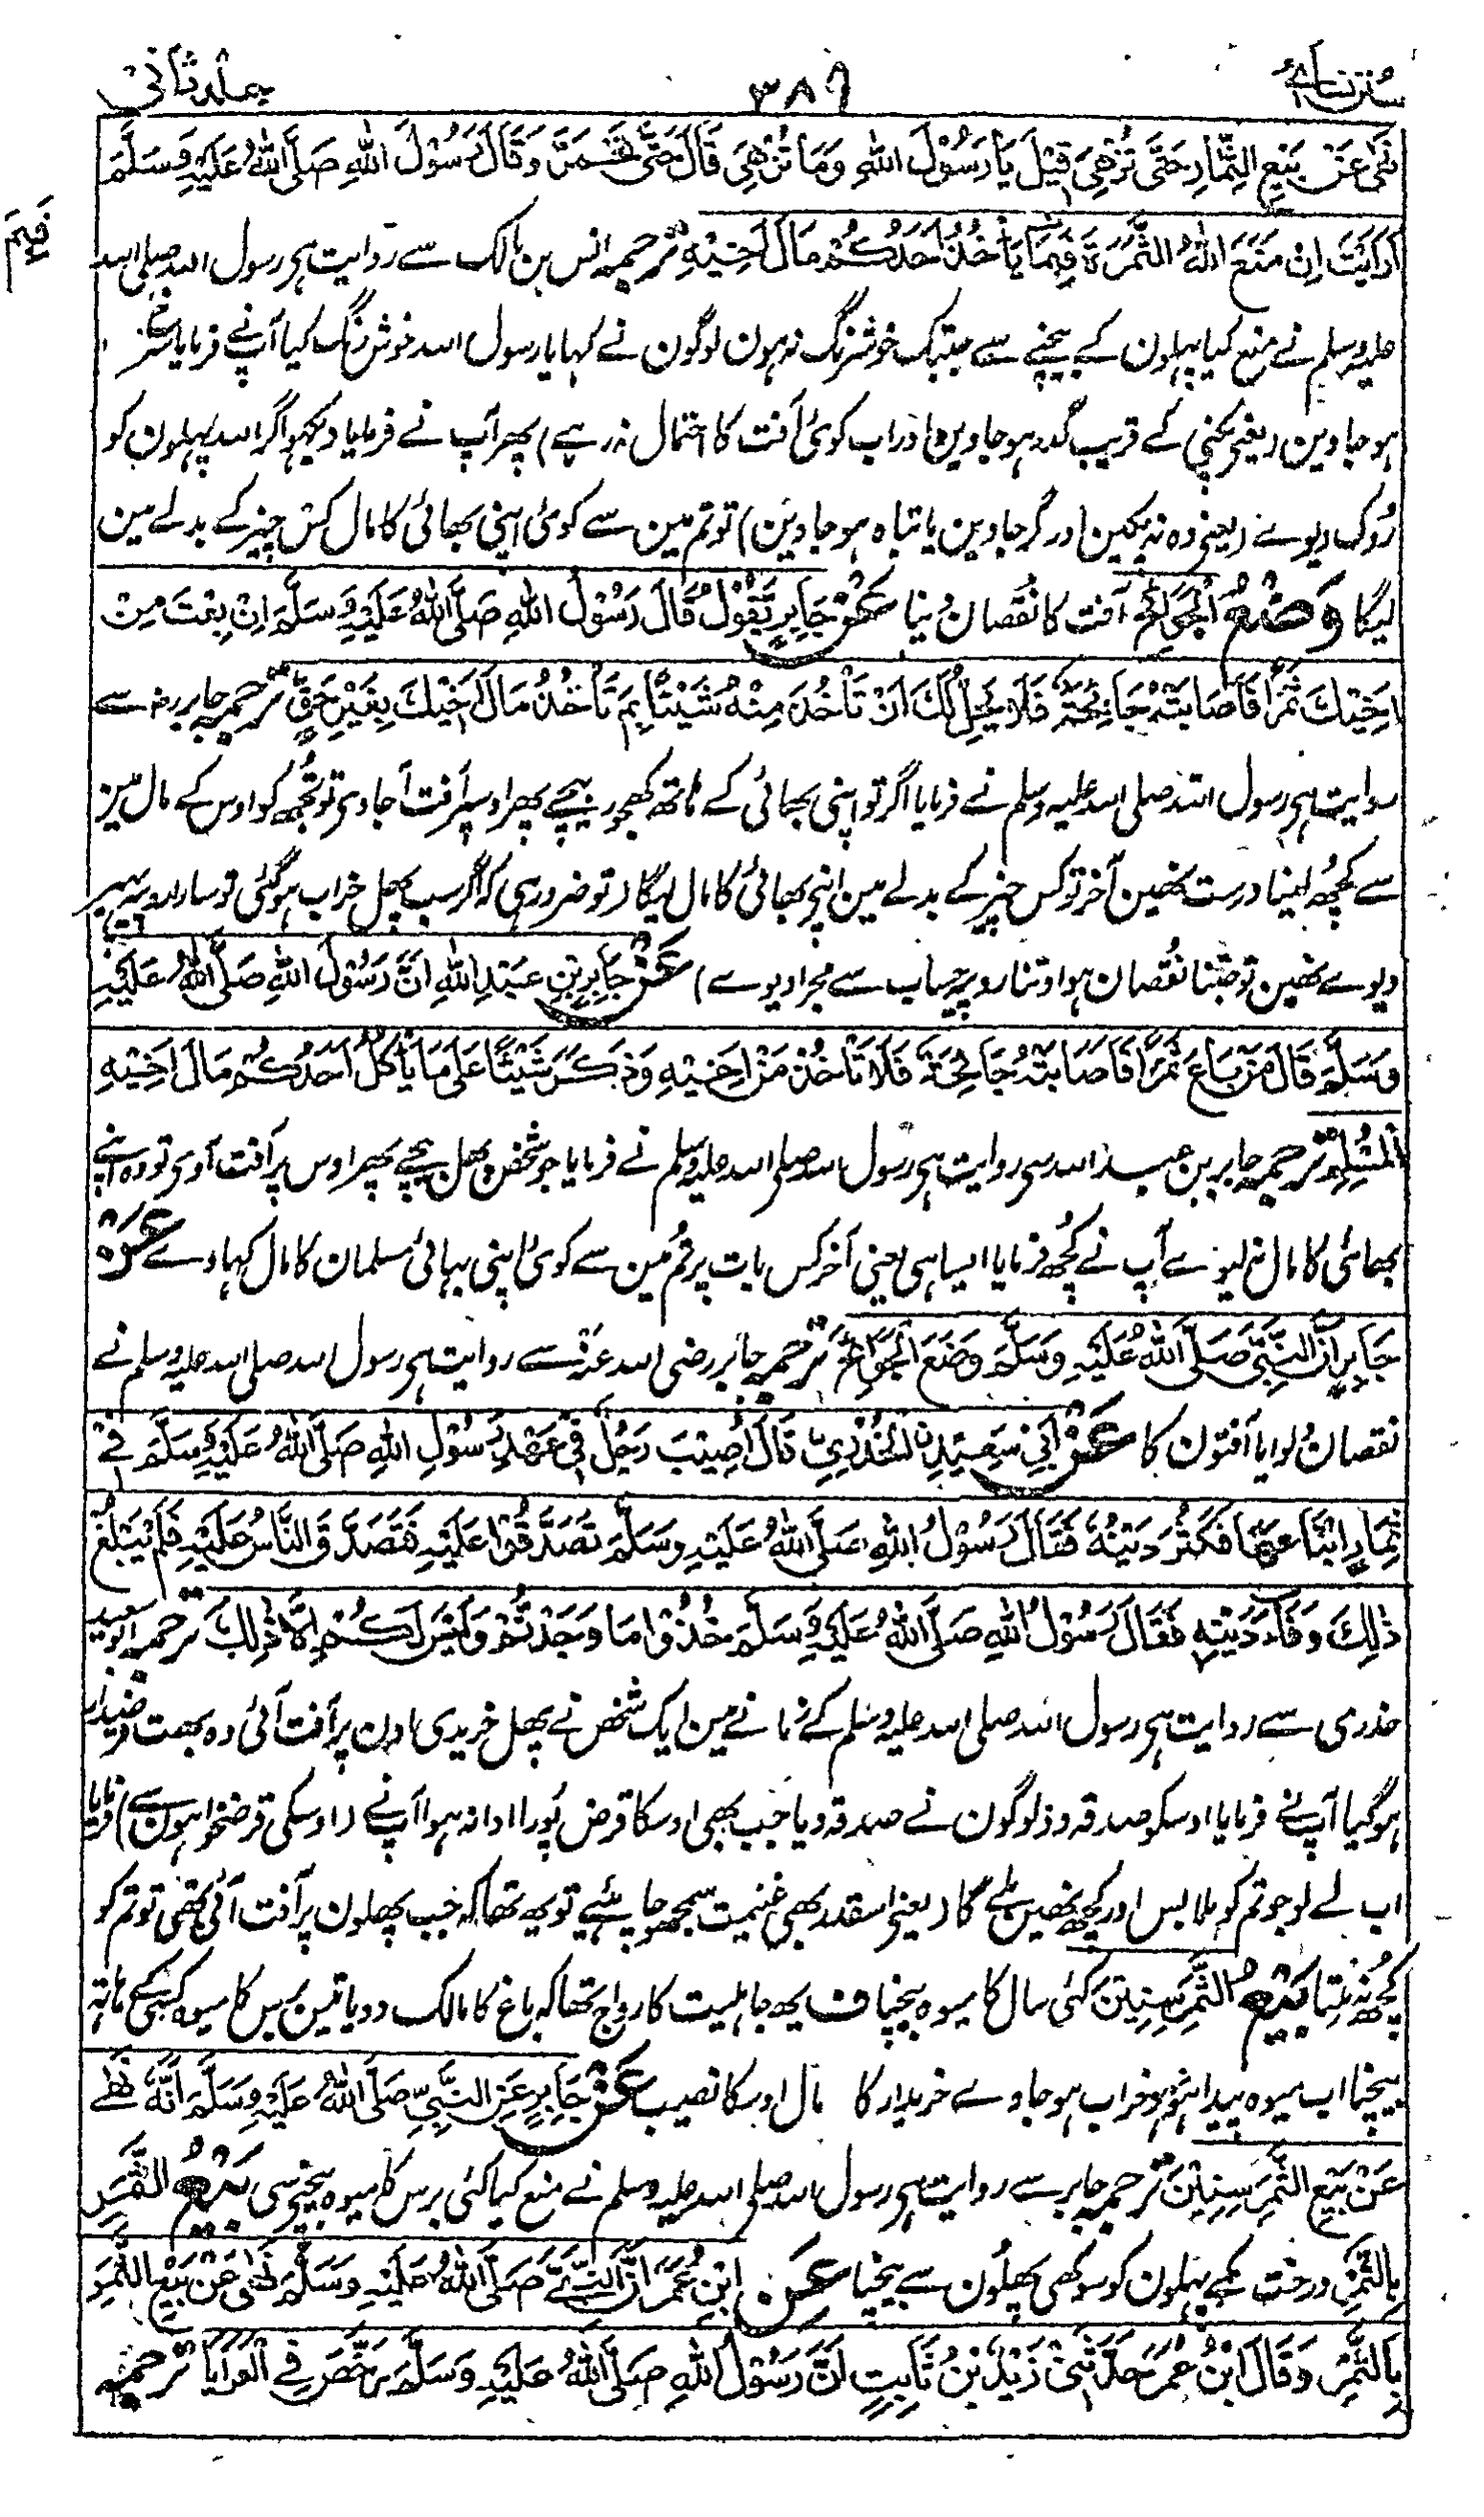 سنن نسائی ۳۸۹ جلد ثانی
نَهٰى عَنْ بَيْعِ الثِّمَارِ حَتّٰى تُزْهِيَ قِيْلَ يَا رَسُوْلَ اللهِ وَمَا تُزْهِيَ قَالَ حَتّٰى تَحْمَرَّ وَقَالَ رَسُوْلَ اللهِ صَلَّى اللهُ عَلَيْهِ وَسَلَّمَ
اَرَاَيْتَ اِنْ مَنَعَ اللهُ الثَّمَرَةَ فَبِمَا يَاْخُذُ اَحَدُكُمْ مَالَ اَخِيْهِ ترجمہ انس بن مالک سے روایت ہی رسول اللہ صلی اللہ
علیہ وسلم نے منع کیا پہلون کے بیچنے سے جبتک خوشرنگ نہ ہون لوگون نے کہا یا رسول اللہ خوش رنگ کیا آپ نے فرمایا سرخ
ہو جاوین (یعنی پکنی کے قریب گدر ہو جاوین اور اب کوئی آفت کا احتمال نہ رہے) پھر آپ نے فرمایا دیکہو اگر اللہ پہلون کو
روک دیوے (یعنی وہ نہ پکین اور گر جاوین یا تباہ ہو جاوین) تو تم مین سے کوئی اپنی بھائی کا مال کس چیز کے بدلے مین
لیگا وَضْعُ الْجَوَائِحِ آفت کا نقصان دینا عَنْ جَابِرٍ يَقُوْلُ قَالَ رَسُوْلُ اللهِ صَلَّى اللهُ عَلَيْهِ وَسَلَّمَ اِنْ بِعْتَ مِنْ
اَخِيْكَ ثَمَرًا فَاَصَابَتْهُ جَائِحَةٌ فَلَا يَحِلُّ لَكَ اَنْ تَاْخُذَ مِنْهُ شَيْئًا بِمَ تَاْخُذُ مَالَ اَخِيْكَ بِغَيْرِ حَقٍّ ترجمہ جابر رض سے
روایت ہی رسول اللہ صلی اللہ علیہ وسلم نے فرمایا اگر تو اپنی بھائی کے ہاتھ کھجور بیچے پھر اوسپر آفت آجاوی تو تجھ کو اوس کے مال مین
سے کچھ لینا درست نھین آخر تو کس چیز کے بدلے مین اپنی بھائی کا مال لیگا (تو ضرور ہی کہ اگر سب پھل خراب ہو گئی تو سارا روپیہ پھیر
دیوے نھین تو جتنا نقصان ہوا اوتنا روپیہ حساب سے مجرا دیوے) عَنْ جَابِرِ بْنِ عَبْدِ اللهِ اَنَّ رَسُوْلَ اللهِ صَلَّى اللهُ عَلَيْهِ
وَسَلَّمَ قَالَ مَنْ بَاعَ ثَمَرًا فَاَصَابَتْهُ جَائِحَةٌ فَلَا تَاْخُذْ مِنْ اَخِيْهِ وَذَكَرَ شَيْئًا عَلٰى مَا يَاْكُلُ اَحَدُكُمْ مَالَ اَخِيْهِ
الْمُسْلِمِ ترجمہ جابر بن عبد اللہ سی روایت ہی رسول اللہ صلی اللہ علیہ وسلم نے فرمایا جو شخص پھل بیچے پھر اوس پر آفت آوی تو وہ اپنے
بھائی کا مال نہ لیوے آپ نے کچھ فرمایا ایسا ہی یعنی آخر کس بات پر تم مین سے کوئی اپنی بہائی مسلمان کا مال کہاوے عَنْ
جَابِرٍ اَنَّ النَّبِيَّ صَلَّى اللهُ عَلَيْهِ وَسَلَّمَ وَضَعَ الْجَوَائِحَ ترجمہ جابر رضی اللہ عنہ سے روایت ہی رسول اللہ صلی اللہ علیہ وسلم نے
نقصان دلوایا آفتون کا عَنْ اَبِيْ سَعِيْدِنِ الْخُدْرِيِّ قَالَ اُصِيْبَ رَجُلٌ فِيْ عَهْدِ رَسُوْلِ اللهِ صَلَّى اللهُ عَلَيْهِ وَسَلَّمَ فِيْ
ثِمَارٍ ابْتَاعَهَا فَكَثُرَ دَيْنُهُ فَقَالَ رَسُوْلُ اللهِ صَلَّى اللهُ عَلَيْهِ وَسَلَّمَ تَصَدَّقُوْا عَلَيْهِ فَتَصَدَّقَ النَّاسُ عَلَيْهِ فَلَمْ يَبْلُغْ
ذٰلِكَ وَفَاءَ دَيْنِهِ فَقَالَ رَسُوْلُ اللهِ صَلَّى اللهُ عَلَيْهِ وَسَلَّمَ خُذُوْا مَا وَجَدْتُمْ وَلَيْسَ لَكُمْ اِلَّا ذٰلِكَ ترجمہ ابو سعید
خدری سے روایت ہی رسول اللہ صلی اللہ علیہ وسلم کے زمانے مین ایک شخص نے پھل خریدی اون پر آفت آئی وہ بھت قرضدار
ہو گیا آپ نے فرمایا اوسکو صدقہ دو لوگون نے صدقہ دیا جب بھی اوسکا قرض پورا ادا نہ ہوا آپنے (اوسکی قرضخواہون سے) فرمایا
اب لے لو جو تم کو ملا بس اور کچھ نھین ملے گا (یعنی اسقدر بھی غنیمت سمجھو چاہئیے تو یہ تھا کہ جب پھلون پر آفت آئی تھی تو تم کو
کچھ نہ ملتا بَيْعُ الثَّمَرِ سِنِيْنَ کئی سال کا میوہ بیچنا ف یہ جاہلیت کا رواج تھا کہ باغ کا مالک دو یا تین برس کا میوہ کسی کے ہاتھ
بیچتا اب میوہ پیدا نہو خراب ہو جاوے خریدار کا مال اوسکا نصیب عَنْ جَابِرٍ عَنِ النَّبِيِّ صَلَّى اللهُ عَلَيْهِ وَسَلَّمَ اَنَّهُ نَهٰى
عَنْ بَيْعِ الثَّمَرِ سِنِيْنَ ترجمہ جابر سے روایت ہی رسول اللہ صلی اللہ علیہ وسلم نے منع کیا کئی برس کا میوہ بیچنی سی بَيْعُ الثَّمَرِ
بِالتَّمْرِ درخت کے پہلون کو سوکھی پھلون سے بیچنا عَنِ ابْنِ عُمَرَ اَنَّ النَّبِيَّ صَلَّى اللهُ عَلَيْهِ وَسَلَّمَ نَهٰى عَنْ بَيْعِ الثَّمَرِ
بِالتَّمْرِ وَقَالَ ابْنُ عُمَرَ حَدَّثَنِيْ زَيْدُ بْنُ ثَابِتٍ اَنَّ رَسُوْلَ اللهِ صَلَّى اللهُ عَلَيْهِ وَسَلَّمَ رَخَّصَ فِي الْعَرَايَا ترجمہ